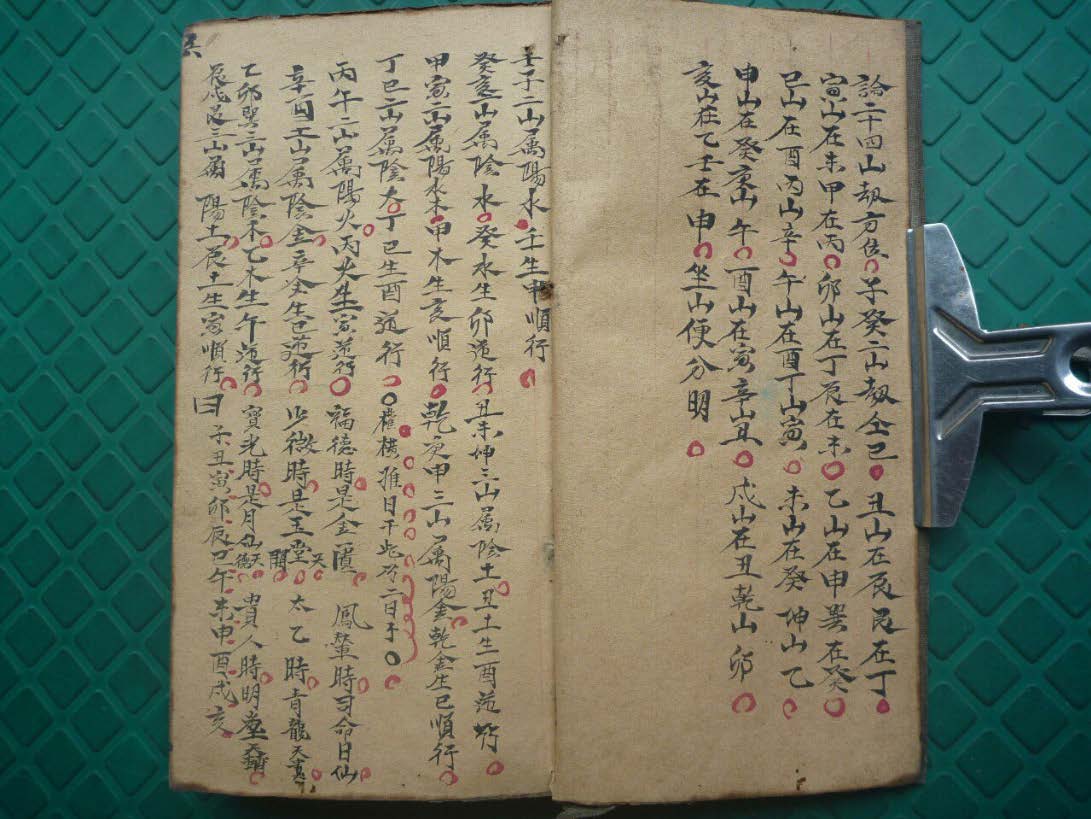 論二十四山劫方位子癸二山劫全巳丑山在辰艮在丁
寅山在未甲在丙卯山在丁辰在未乙山在申巽在癸
巳山在酉丙山辛午山在酉丁山寅未山在癸坤山乙
申山在癸庚山午酉山在寅辛山丑戍山在丑乾山卯
亥山在乙壬在申坐山便分明
壬子二山属陽水壬生申順行
癸亥二山属陰水癸水生卯逆行丑未坤三山属陰土丑土生酉逆行
甲寅二山属陽木甲木生亥順行乾庚申三山属陽金乾金生巳順行
丁巳二山属陰火丁巳生酉逆行日干此乃二日子
丙午二山萬陽火丙火生寅逆行福德時是金匱鳳輦時司命日仙
辛酉二山属陰金辛金生巳逆行少微時是玉堂天開太乙時青龍天
乙卯巽三山属陰木乙木生午逆行寶光時是月仙天德貴人時明堂
辰戍艮三山属陽土辰土生寅順行曰子丑寅卯辰巳午未申酉戍亥